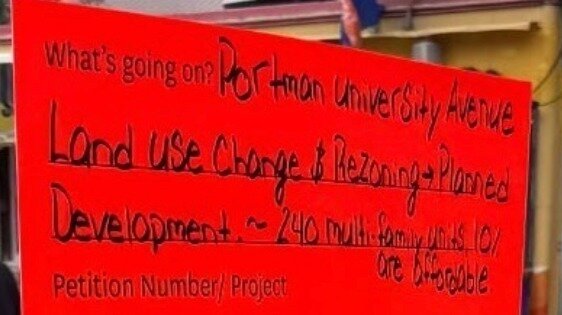 What's going on? Portman University Avenue
Land Use Change & Rezoning → Planned
Development. ~ 240 multi-family units, 10%
are affordable.
Petition Number/ Project